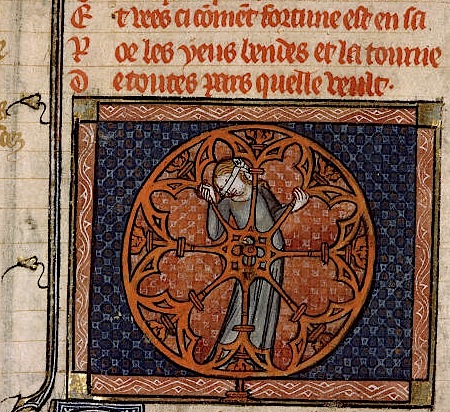 Et vees ci cõmẽt fortune est en sa
Roe les yeus bendes et la tourne
De toutes pars quelle veult.